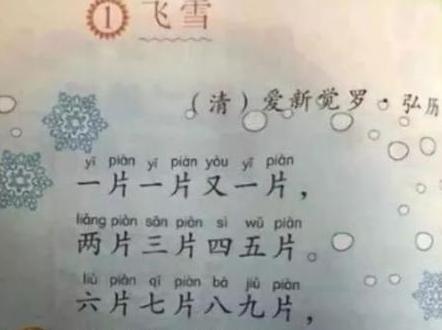 1 飞雪
（清）爱新觉罗·弘历
yī piàn yī piàn yòu yī piàn
一片一片又一片，
liǎng piàn sān piàn sì wǔ piàn
两片三片四五片。
liù piàn qī piàn bā jiǔ piàn
六片七片八九片，